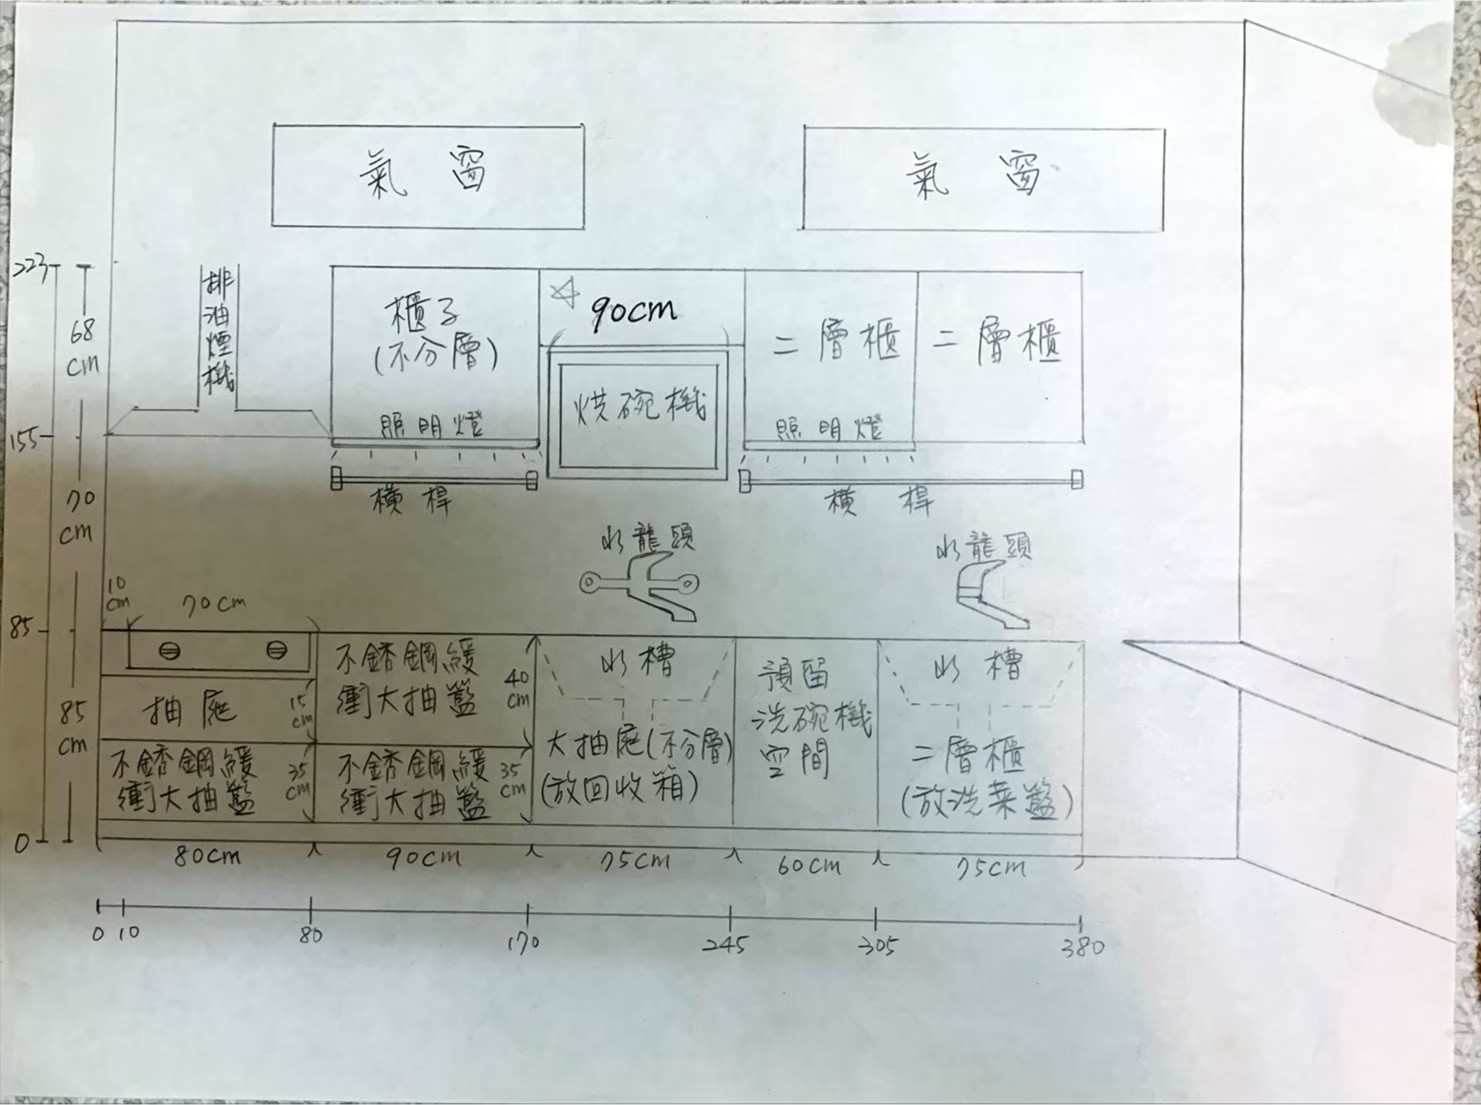 氣 窗
氣 窗
223
68
cm
155
70
cm
85
85
cm
0
排油煙機
櫃子
(不分層)
照明燈
橫桿
☆
90cm
烘碗機
二層櫃
二層櫃
照明燈
橫 桿
水龍頭
水龍頭
10
cm
70cm
抽屜
15
cm
不銹鋼緩
衝大抽籃
35
cm
不銹鋼緩
衝大抽籃
40
cm
不銹鋼緩
衝大抽籃
35
cm
水槽
大抽屜(不分層)
(放回收箱)
預留
洗碗機
空間
水槽
二層櫃
(放洗菜籃)
80cm
90cm
75cm
60cm
75cm
0 10 80 170 245 305 380